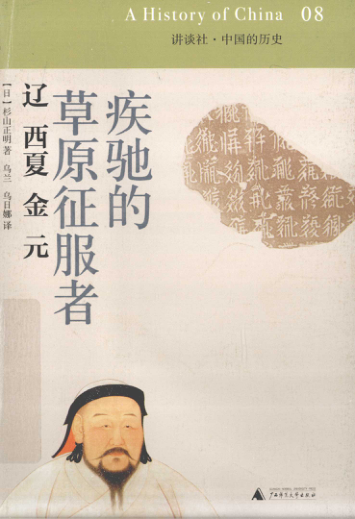 A History of China 08
讲谈社·中国的历史
疾驰的
草原征服者
辽 西夏 金 元
【日】杉山正明 著 乌兰 乌日娜 译
广西师范大学出版社